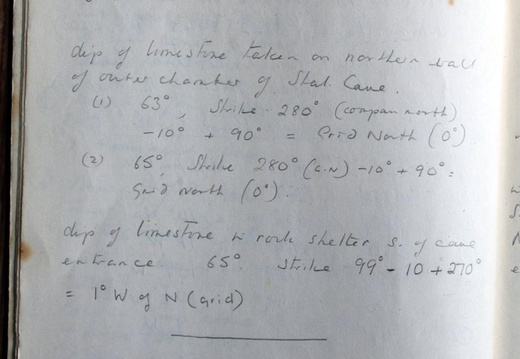 dip of limestone taken on northern wall
of outer chamber of Stal. Cave.
(1) 63°, Strike - 280° (compass north)
-10° + 90° = Grid North (0°)
(2) 65°, Strike 280° (C.N) -10° + 90° =
Grid north (0°).
dip of limestone in rock shelter S. of cave
entrance 65°. Strike 99° - 10 + 270°
= 1° W of N (grid)